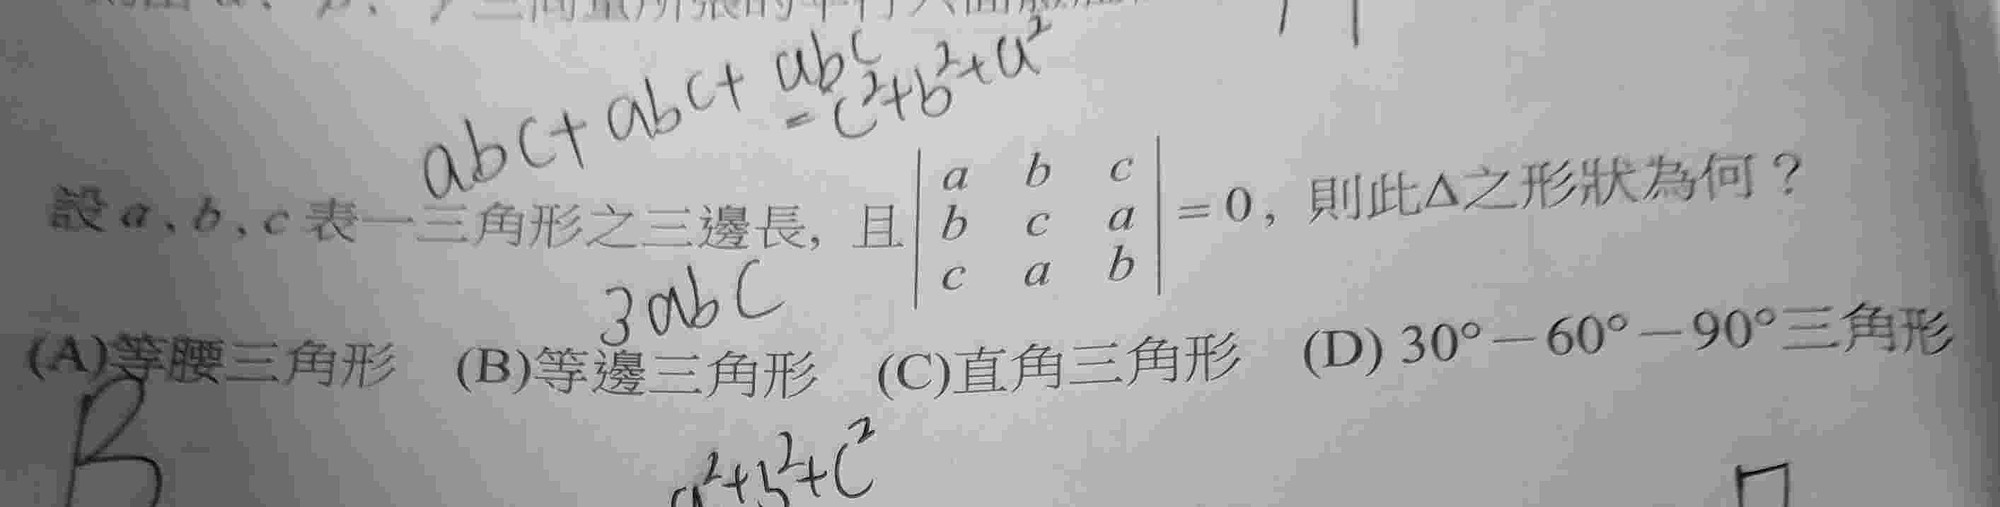 abc + abc + abc
= c²+b²+a²
設 a、b、c 表一三角形之三邊長，且 | a b c | = 0，則此Δ之形狀為何？
| b c a |
| c a b |
3abc
(A)等腰三角形 (B)等邊三角形 (C)直角三角形 (D) 30°－60°－90°三角形
B
a²+b²+c²